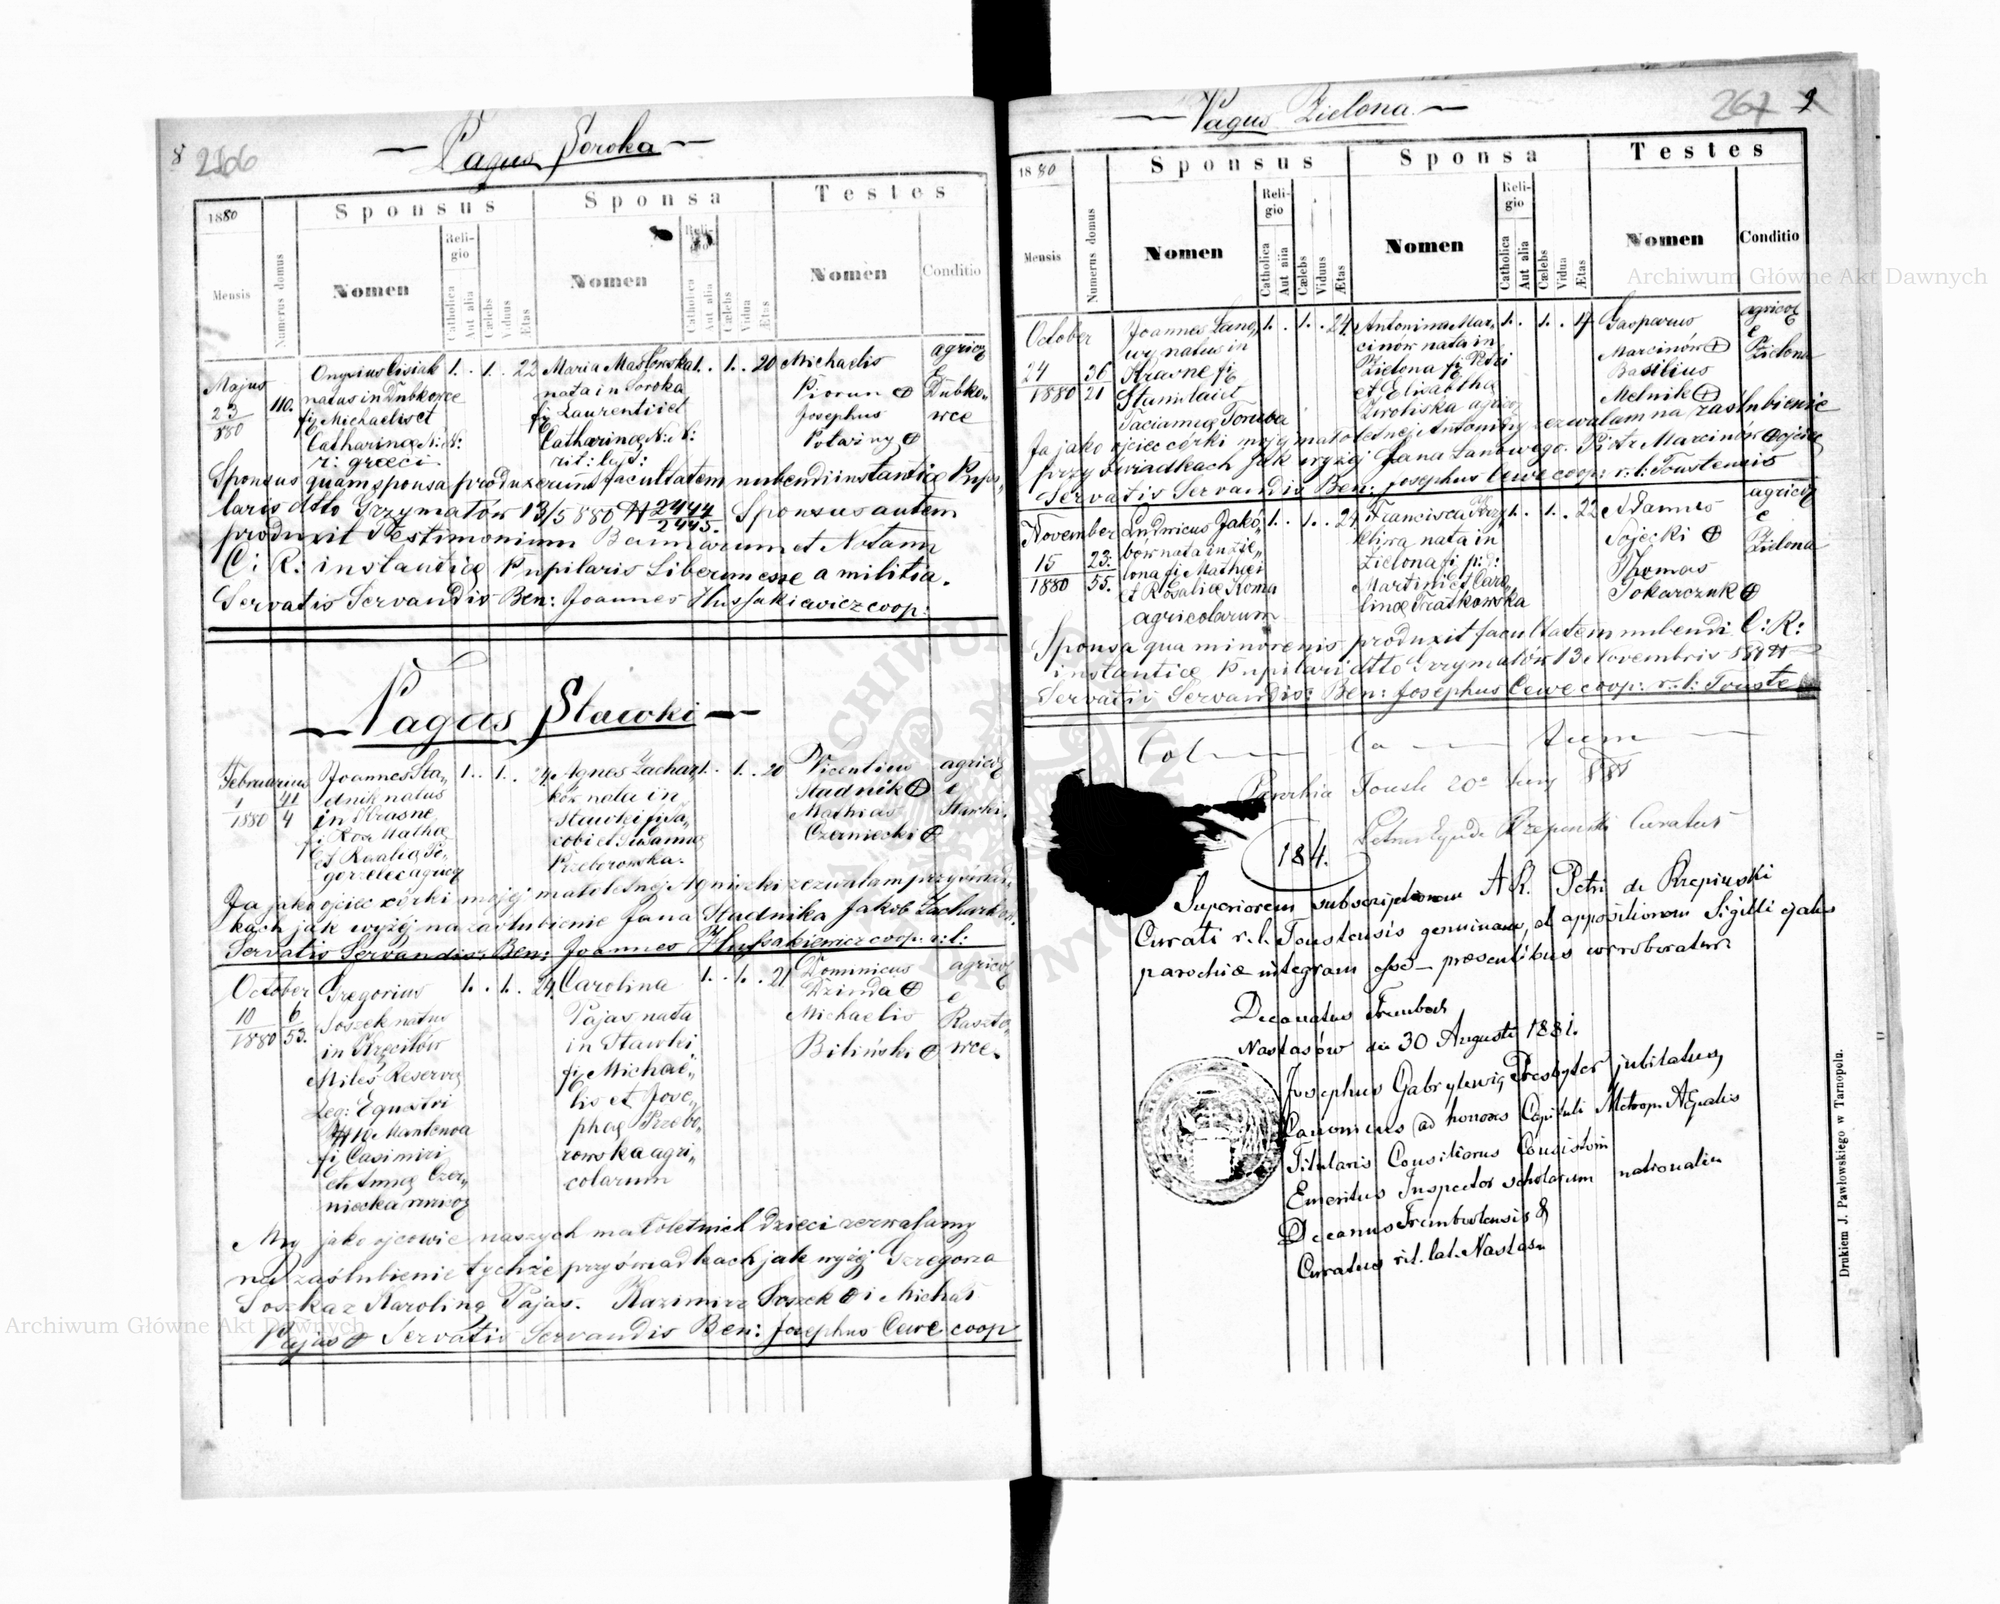 8 266
Pagus Soroka
1880
Sponsus
Sponsa
Testes
Mensis
Numerus domus
Nomen
Religio
Catholica
Aut alia
Cælebs
Viduus
Ætas
Nomen
Religio
Catholica
Aut alia
Cælebs
Vidua
Ætas
Nomen
Conditio
Majus
23
880
110.
Onysius Cisiak
natus in Dubkowce
fi Michaelis et
Catharinæ N: N:
r: græci
1. . 1. . 22
Maria Masłowska
nata in Soroka
fi Laurentii et
Catharinæ N: N:
rit: lat:
1. . 1. . 20
Michaelis
Piorun
Josephus
Potażny
agricoæ
e
Dubko-
wce
Sponsus quam sponsa produxerunt facultatem nubendi instantiæ Pupi-
laris dtto Grzymałów 13/5 880 N 2444/2445. Sponsus autem
produxit Testimonium Bannorum et Notam
C: R: instantiæ Pupilaris liberum esse a militia.
Servatis Servandis Ben: Joannes Hussakiewicz coop:
Pagus Stawki
Februarius
1
1880
41
4
Joannes Sta-
dnik natus
in Krasne
1. . 1. . 24.
Agnes Zachar-
ków nata in
Stawki fi Ja-
cobi et Susannæ
Przeborowska.
1. . 1. . 20
Vicentius
Stadnik
Mathias
Czerniecki
agricoæ
e
Stawki.
Ja jako ojciec córki mojéj małoletnéj Agnieszki zezwalam przy świad-
kach jak wyżéj na zaślubienie Jana Stadnika Jakób Zacharków
Servatis Servandis: Ben: Joannes Hussakiewicz coop: r: l:
October
10
1880
6
53.
Gregorius
Soszek natus
in Kręciłów
Miles Reservæ
Leg: Equestri
fi Casimiri
et Annæ Czer-
niecka
1. . 1. . 24.
Carolina
Pajas nata
in Stawki
fi Michae-
lis et Jose-
phæ Przebo-
rowska agri-
colarum
1. . 1. . 21
Dominicus
Dzinda
Michaelis
Biliński
agricoæ
e
Raszto-
wce.
My jako ojcowie naszych małoletnich dzieci zezwalamy
na zaślubienie tychże przy świadkach jak wyżéj Grzegorza
Soszka z Karoliną Pajas. Kazimirz Soszek i Michał
Pajas Servatis Servandis Ben: Josephus Cewe coop
267 9
Pagus Zielona
1880
Sponsus
Sponsa
Testes
Mensis
Numerus domus
Nomen
Religio
Catholica
Aut alia
Cælebs
Viduus
Ætas
Nomen
Religio
Catholica
Aut alia
Cælebs
Vidua
Ætas
Nomen
Conditio
October
24
1880
36
21
Joannes Łano-
wy natus in
Krasne fi
Stanislai et
Tacianæ Toruba
1. . 1. . 24.
Antonina Mar-
cinów nata in
Zielona fi Petri
et Elisabtha
1. . 1. .
Gasparus
Marcinów
Basilius
Melnik
agricoæ
e
Zielona
Ja jako ojciec córki mojéj małoletnéj Antoniny zezwalam na zaślubienie
przy świadkach jak wyżéj Jana Łanowego. Piotr Marcinów ojciec
Servatis Servandis Ben: Josephus Cewe coop: r: l: Toustensis
November
15
1880
23.
55.
Ludvicus Jakó-
bów nata in Zie-
lona fi Mathæi
et Rosaliæ Koma
agricolarum
1. . 1. . 24
Francisca Krzy-
kliwa nata in
Zielona fi p: d:
Martini et Caro-
linæ Fiatkowska
1. . 1. . 22
Adamus
Sojecki
Thomas
Tokarczuk
agricoæ
e
Zielona
Sponsa qua minorenis produxit facultatem nubendi C: R:
instantiæ Pupilari dtto Grzymałów 13 Novembris 880
Servatis Servandis: Ben: Josephus Cewe coop: r: l: Touste
Parochia Touste 20
184.
Curatus
Superiorem subscriptionem A. R. Petri de Rzepinski
Curati r. l. Toustensis genuinam, et appositionem Sigilli ejatus
parochiæ integram esse – præsentibus corroboratur
Decanatus Trembow
Nastasów die 30 Augusti 1881.
Josephus Gabrylewicz Presbyter jubilatus,
Canonicus ad honores Capituli Metrop. AEpalis
Titularis Consiliarius Consistorii
Emeritus Inspector scholarum nationalium
Decanus Trembovlensis &
Curatus rit. lat. Nastasów
Drukiem J. Pawłowskiego w Tarnopolu.
Archiwum Główne Akt Dawnych
Archiwum Główne Akt Dawnych